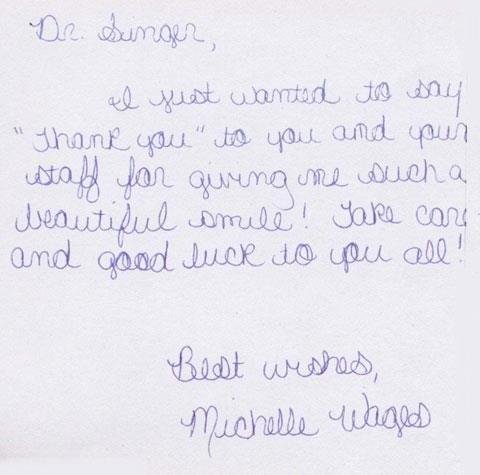 Dr. Singer,
I just wanted to say
"Thank you" to you and your
staff for giving me such a
beautiful smile! Take care
and good luck to you all!
Best wishes,
Michelle Wages